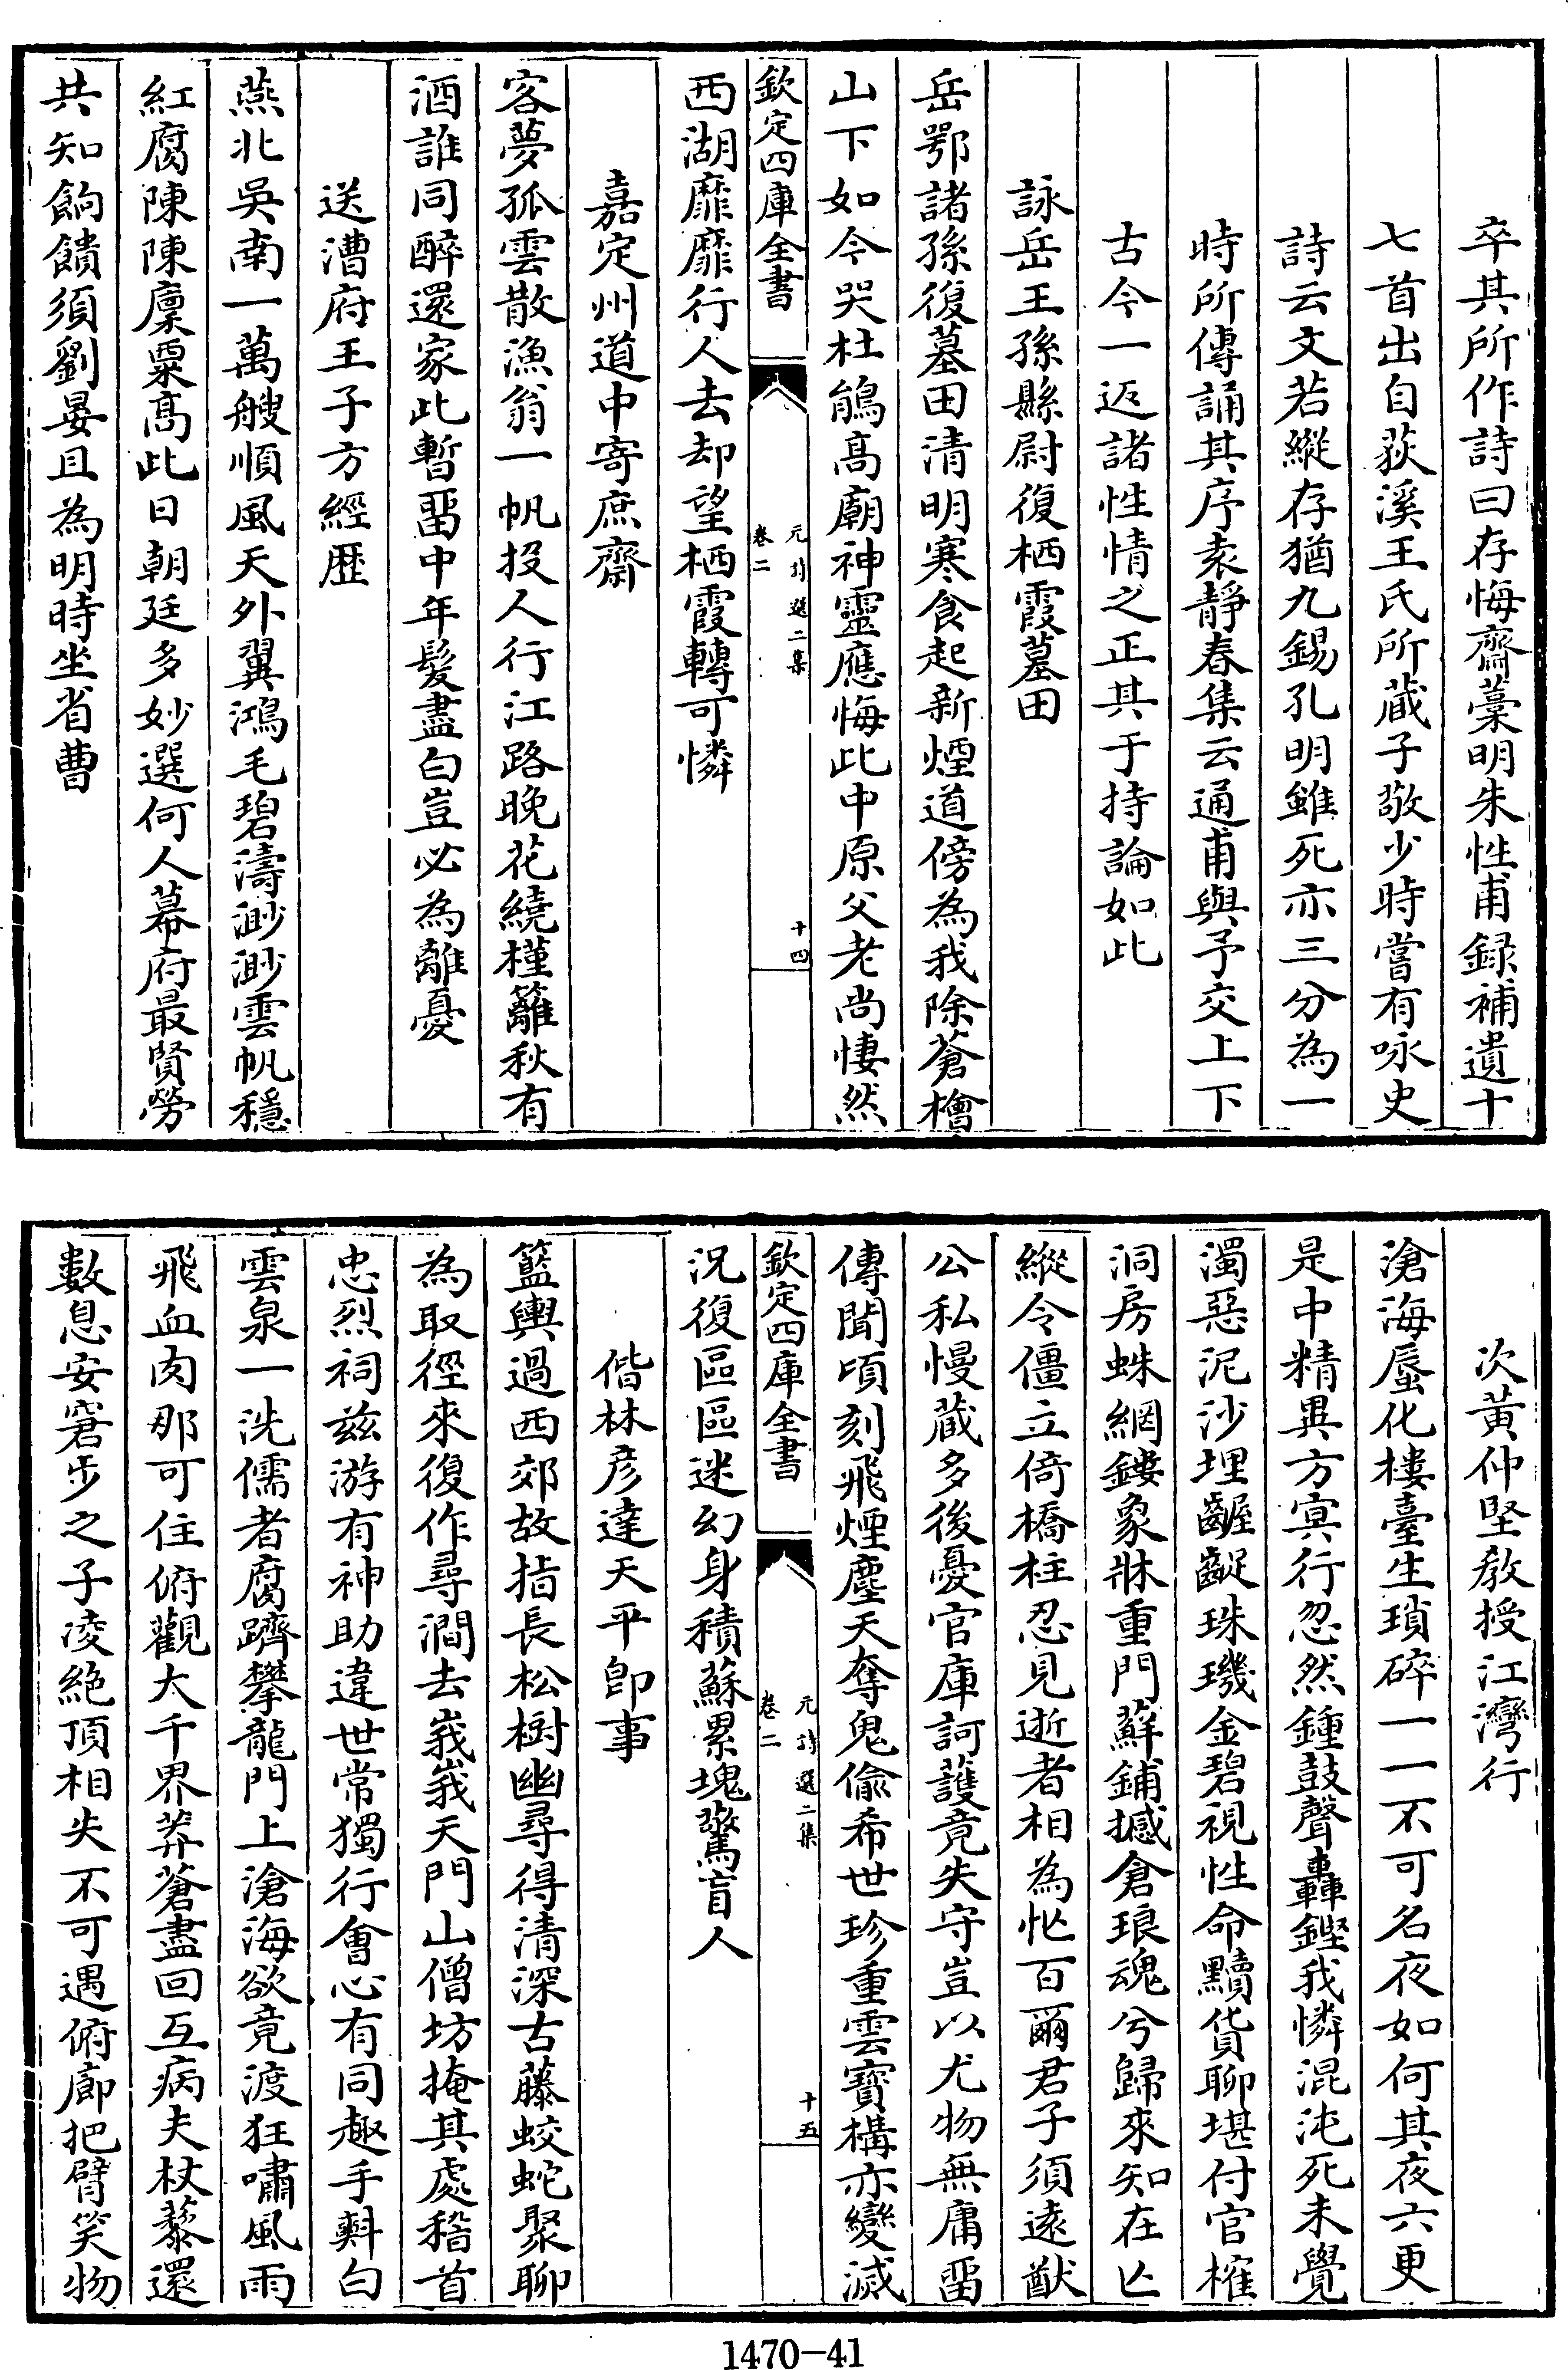 卒其所作詩曰存悔齋藁明朱性甫録補遺十
七首出自荻溪王氏所蔵子敬少時嘗有咏史
詩云文若縱存猶九錫孔明雖死亦三分為一
時所傳誦其序袁靜春集云通甫與予交上下
古今一返諸性情之正其于持論如此
詠岳王孫縣尉復栖霞墓田
岳鄂諸孫復墓田清明寒食起新煙道傍為我除蒼檜
山下如今哭杜鵑髙廟神靈應悔此中原父老尚悽然
欽定四庫全書
元詩選二集
卷二
十四
西湖靡靡行人去却望栖霞轉可憐
嘉定州道中寄庶齋
客夢孤雲散漁翁一帆投人行江路晚花繞槿籬秋有
酒誰同醉還家此暫畱中年髮盡白豈必為離憂
送漕府王子方經歴
燕北吳南一萬艘順風天外翼鴻毛碧濤渺渺雲帆穩
紅腐陳陳廩粟髙此日朝廷多妙選何人幕府最賢勞
共知餉饋須劉晏且為明時坐省曹
次黃仲堅教授江灣行
滄海蜃化樓臺生瑣碎一一不可名夜如何其夜六更
是中精異方㝠行忽然鍾鼓聲轟鏗我憐混沌死未覺
濁惡泥沙埋齷齪珠璣金碧視性命黷貨聊堪付官榷
洞房蛛網鏤象牀重門蘚鋪撼倉琅魂兮歸來知在亾
縱令僵立倚橋柱忍見逝者相為忙百爾君子須逺猷
公私慢蔵多後憂官庫訶護竟失守豈以尤物無庸畱
傳聞頃刻飛煙塵天奪鬼偷希世珍重雲寶構亦變滅
欽定四庫全書
元詩選二集
卷二
十五
況復區區迷幻身積蘇累塊驚盲人
偕林彦達天平卽事
籃輿過西郊故指長松樹幽尋得清深古藤蛟蛇聚聊
為取徑來復作尋澗去峩峩天門山僧坊掩其處稽首
忠烈祠兹游有神助違世常獨行㑹心有同趣手㪺白
雲泉一洗儒者腐躋攀龍門上滄海欲竟渡狂嘯風雨
飛血肉那可住俯觀大千界莽蒼盡回互病夫杖藜還
數息安窘步之子凌絶頂相失不可遇俯廊把臂笑物
1470-41